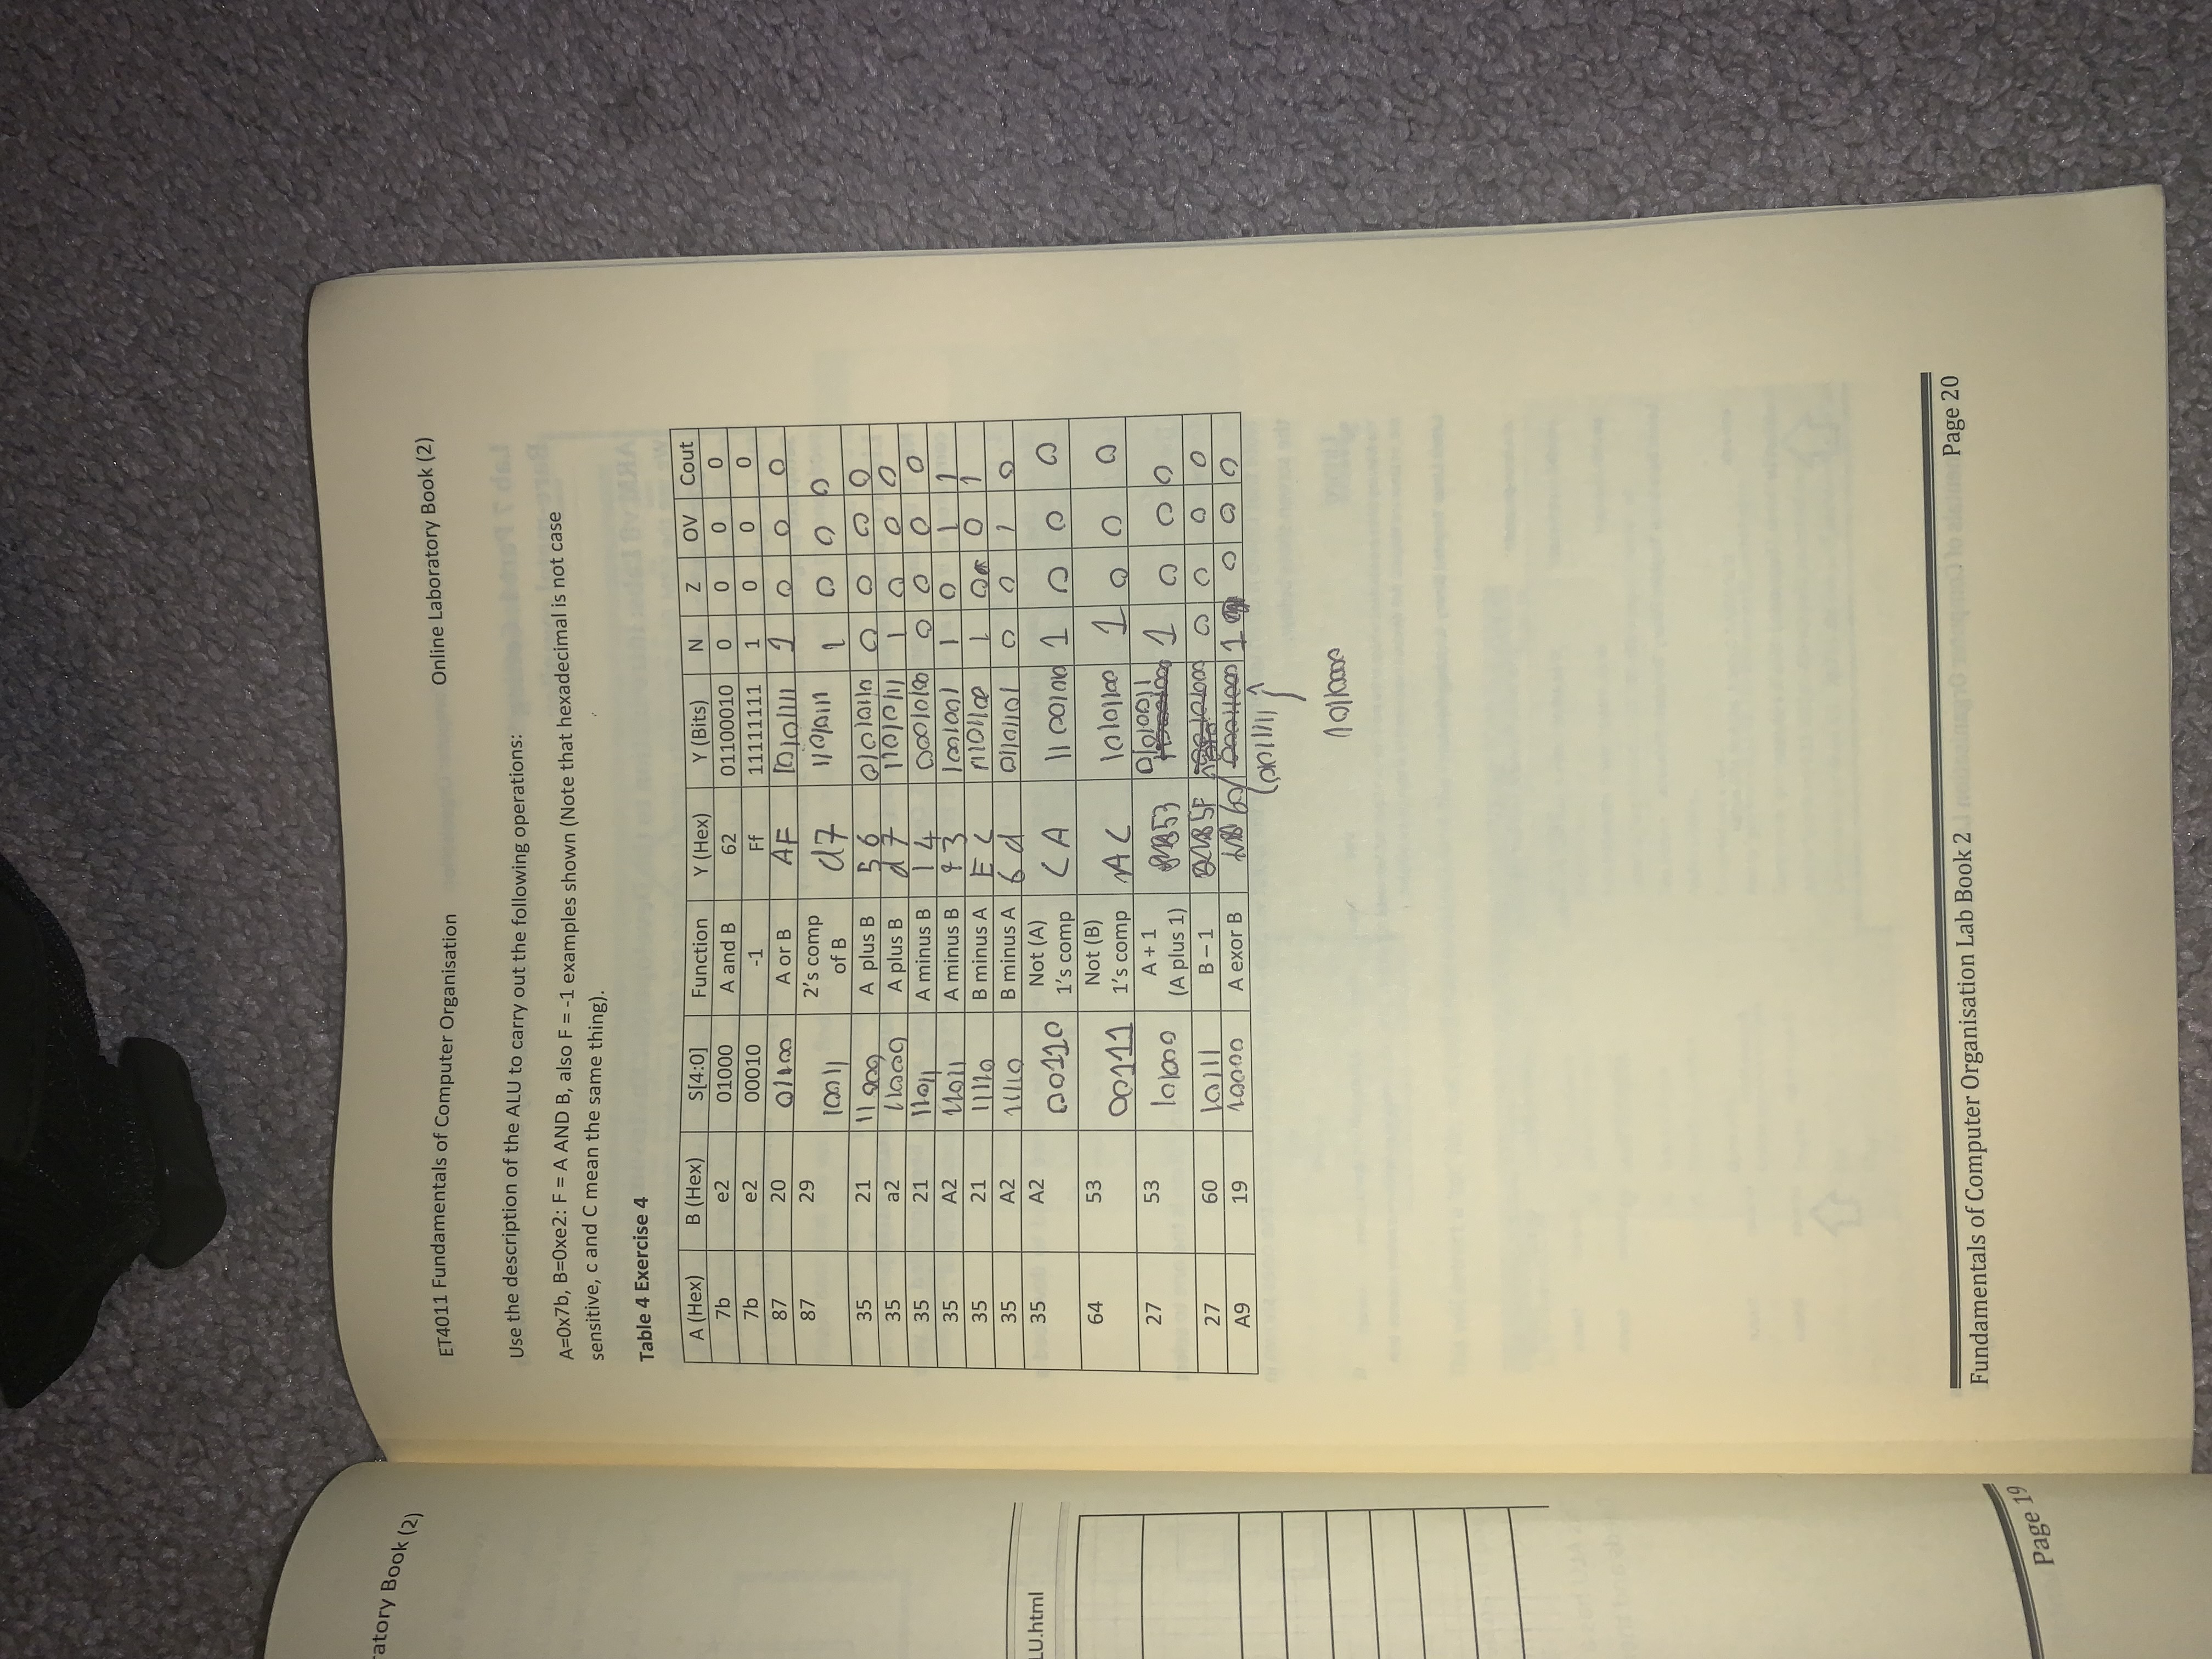 ratory Book (2)
ET4011 Fundamentals of Computer Organisation Online Laboratory Book (2)
Use the description of the ALU to carry out the following operations:
A=0x7b, B=0xe2: F = A AND B, also F = -1 examples shown (Note that hexadecimal is not case
sensitive, c and C mean the same thing).
Table 4 Exercise 4
A (Hex) B (Hex) S[4:0] Function Y (Hex) Y (Bits) N Z OV Cout
7b e2 01000 A and B 62 01100010 0 0 0 0
7b e2 00010 -1 Ff 11111111 1 0 0 0
87 20 01100 A or B AF 10101111 1 0 0 0
87 29 10011 2's comp of B d7 11010111 1 0 0 0
35 21 11000 A plus B 56 01010110 0 0 0 0
35 a2 11000 A plus B d7 11010111 1 0 0 0
35 21 11011 A minus B 14 00010100 0 0 0 0
35 A2 11011 A minus B 93 1001001 1 0 1 1
35 21 11110 B minus A EC 11101100 1 0 0 1
35 A2 11110 B minus A 6d 01101101 0 0 1 0
35 A2 00110 Not (A) 1's comp CA 11001010 1 0 0 0
64 53 00111 Not (B) 1's comp AC 10101100 1 0 0 0
27 53 101000 A + 1 (A plus 1) 53 01010011 1 0 0 0
27 60 10111 B – 1 5F 0 0 0 0
A9 19 10000 A exor B 1 0 0 0
LU.html
10110000
Fundamentals of Computer Organisation Lab Book 2 Page 20
Page 19